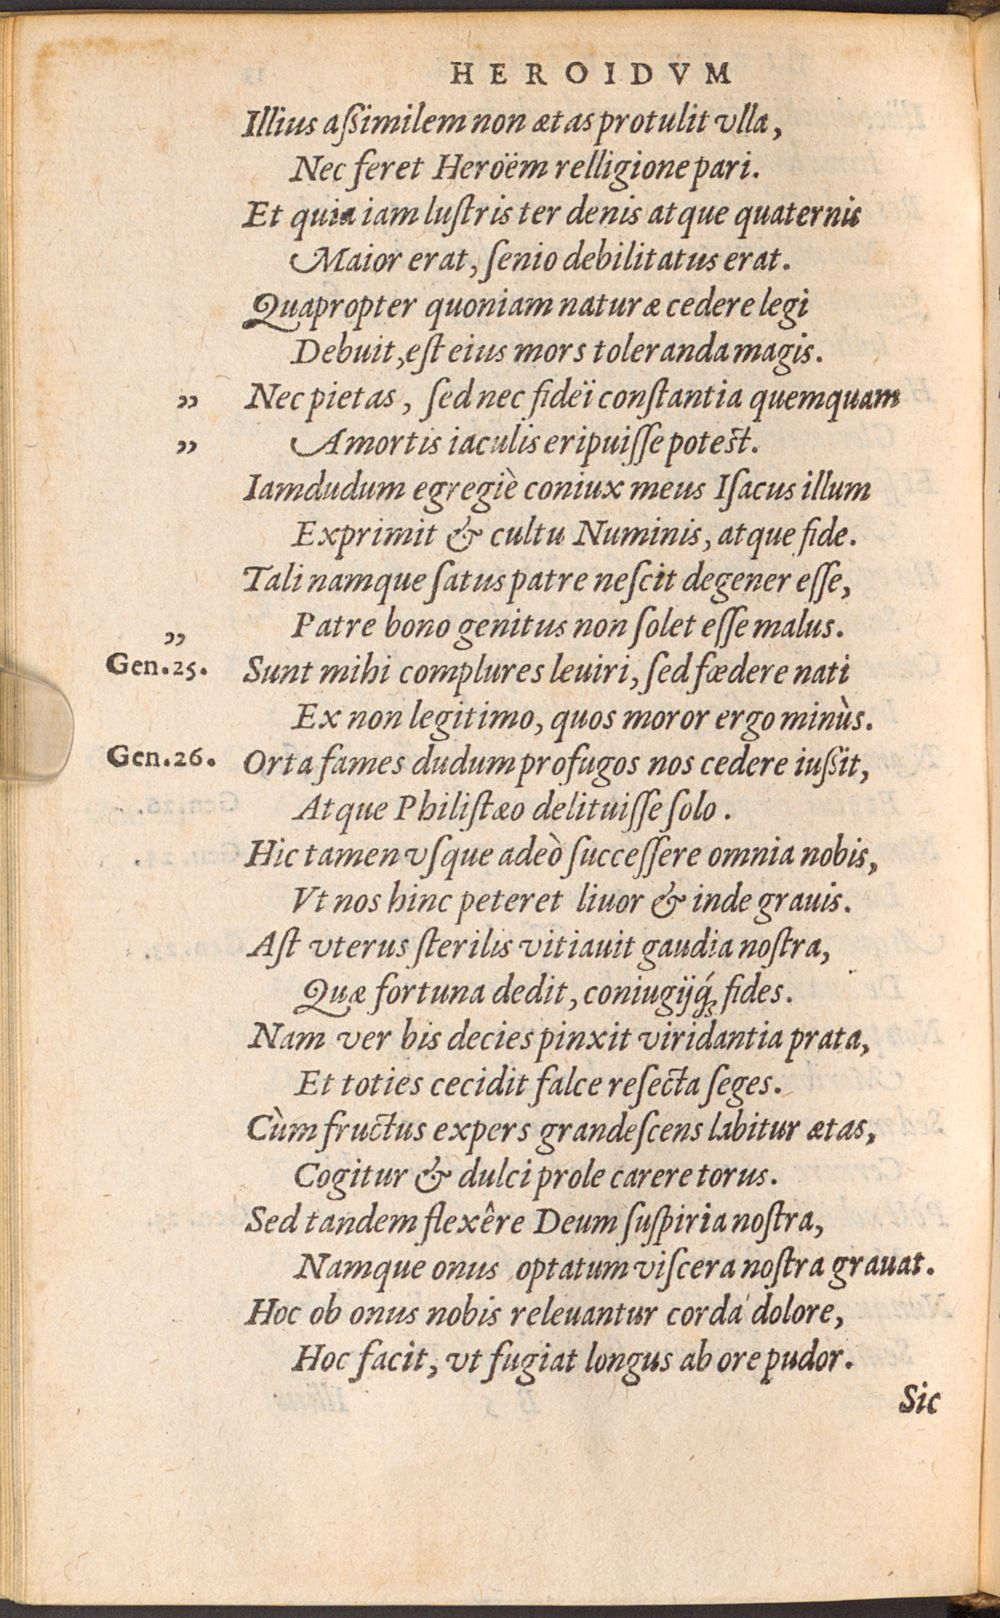 HEROIDVM
Illius aßimilem non ætas protulit vlla,
Nec feret Heroëm relligione pari.
Et quia iam lustris ter denis atque quaternis
Maior erat, senio debilitatus erat.
Quapropter quoniam naturæ cedere legi
Debuit, est eius mors toleranda magis.
„ Nec pietas, sed nec fideï constantia quemquam
„ A mortis iaculis eripuisse potest.
Iamdudum egregiè coniux meus Isacus illum
Exprimit & cultu Numinis, atque fide.
Tali namque satus patre nescit degener esse,
„ Patre bono genitus non solet esse malus.
Gen.25. Sunt mihi complures leuiri, sed fœdere nati
Ex non legitimo, quos moror ergo minùs.
Gen.26. Orta fames dudum profugos nos cedere iußit,
Atque Philistæo delituisse solo.
Hic tamen vsque adeò successere omnia nobis,
Vt nos hinc peteret liuor & inde grauis.
Ast vterus sterilis vitiauit gaudia nostra,
Quæ fortuna dedit, coniugijq́; fides.
Nam ver bis decies pinxit viridantia prata,
Et toties cecidit falce resecta seges.
Cùm fructus expers grandescens labitur ætas,
Cogitur & dulci prole carere torus.
Sed tandem flexêre Deum suspiria nostra,
Namque onus optatum viscera nostra grauat.
Hoc ob onus nobis releuantur corda dolore,
Hoc facit, vt fugiat longus ab ore pudor.
Sic